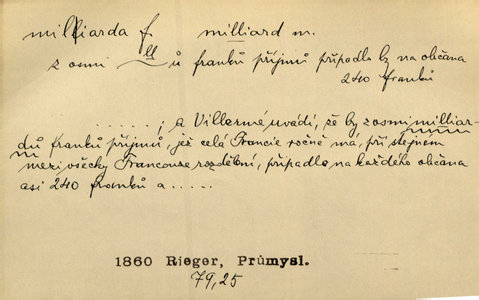 milliarda f. milliard m.
z osmi — ů franků příjmů připadlo by na občana
240 franků
. . . . . . ; a Villermé uvádí, že by z osmi milliar-
dů franků příjmů, jež celá Francie ročně má, při stejném
mezi všecky Francouze rozdělení, připadlo na každého občana
asi 240 franků a . . . . .
1860 Rieger, Průmysl.
79,25